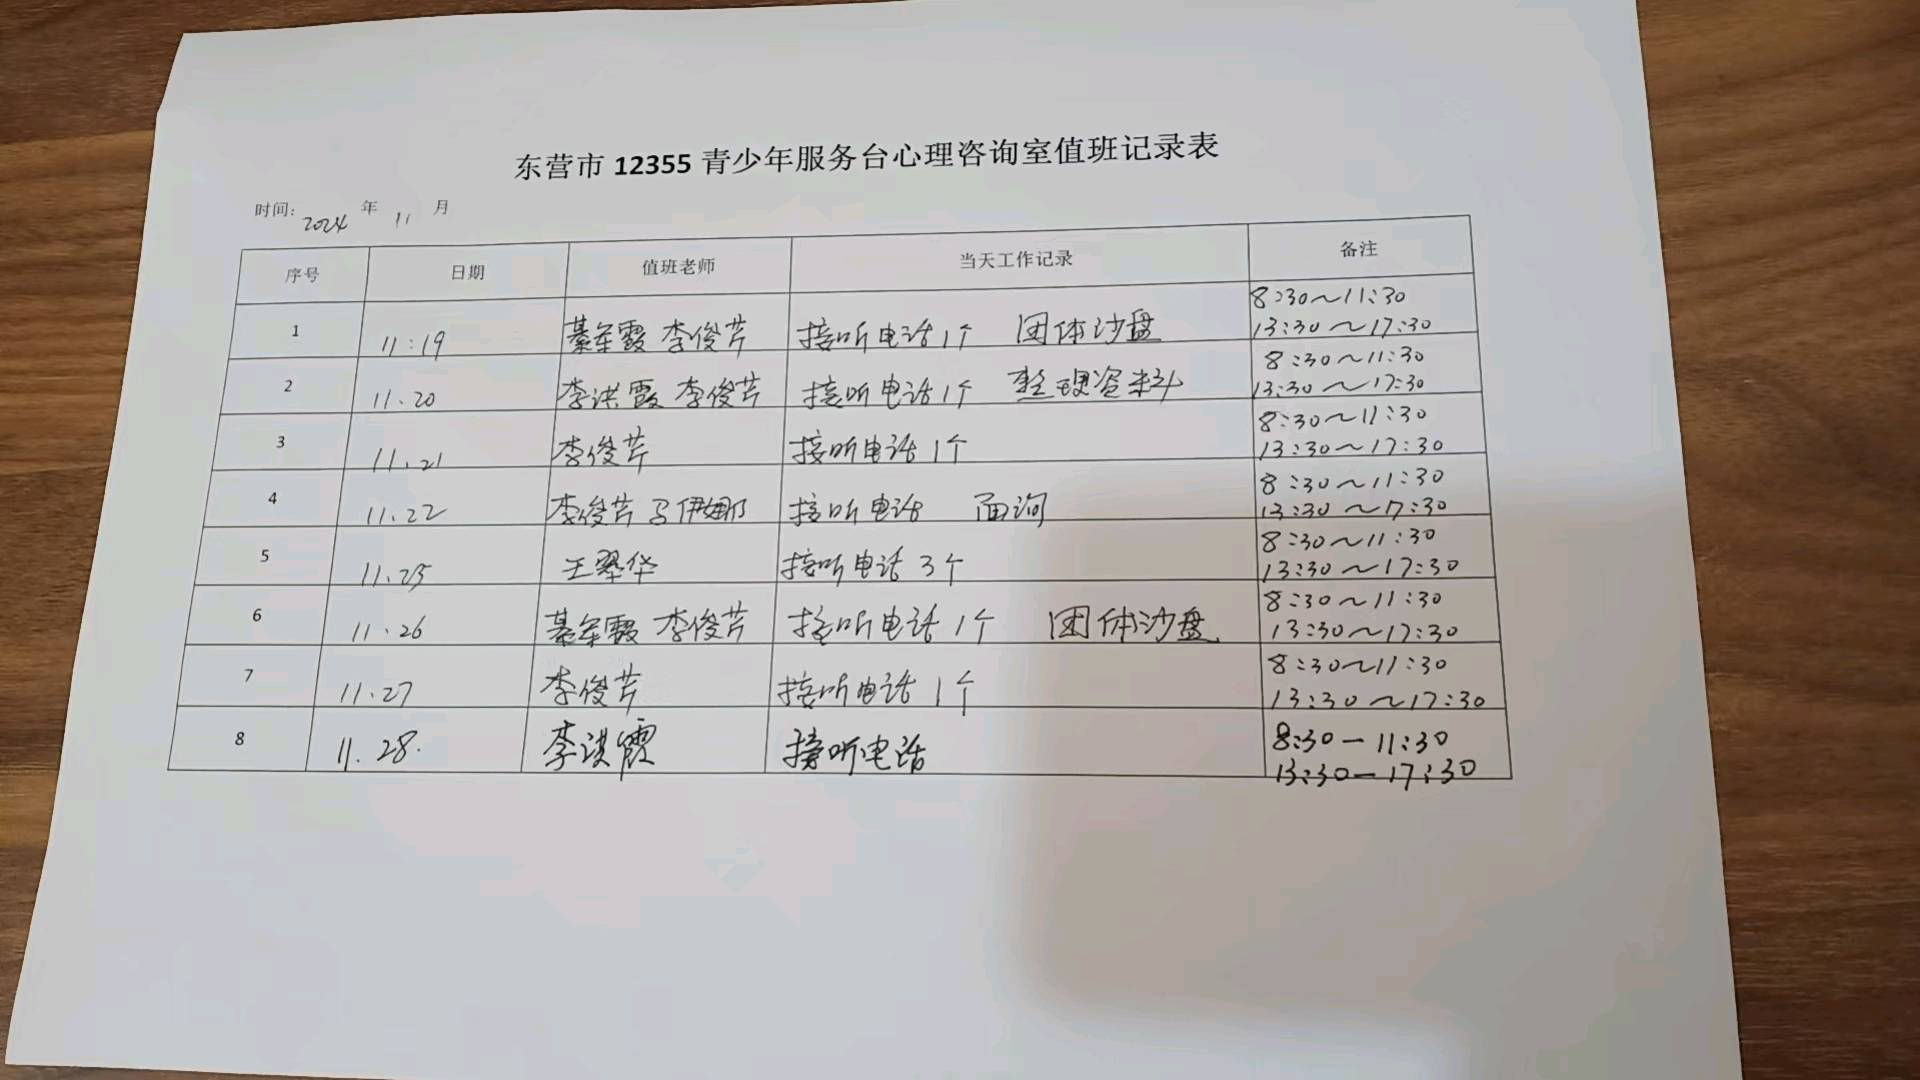 东营市 12355 青少年服务台心理咨询室值班记录表
时间: 2024 年 11 月
序号 日期 值班老师 当天工作记录 备注
1 11:19 綦军霞 李俊芹 接听电话1个 团体沙盘 8:30~11:30
13:30~17:30
2 11.20 李洪霞 李俊芹 接听电话1个 整理资料 8:30~11:30
13:30~17:30
3 11.21 李俊芹 接听电话1个 8:30~11:30
13:30~17:30
4 11.22 李俊芹 马伊娜 接听电话 面询 8:30~11:30
13:30~17:30
5 11.25 王翠华 接听电话3个 8:30~11:30
13:30~17:30
6 11.26 綦军霞 李俊芹 接听电话1个 团体沙盘 8:30~11:30
13:30~17:30
7 11.27 李俊芹 接听电话1个 8:30~11:30
13:30~17:30
8 11.28. 李洪霞 接听电话 8:30-11:30
13:30-17:30